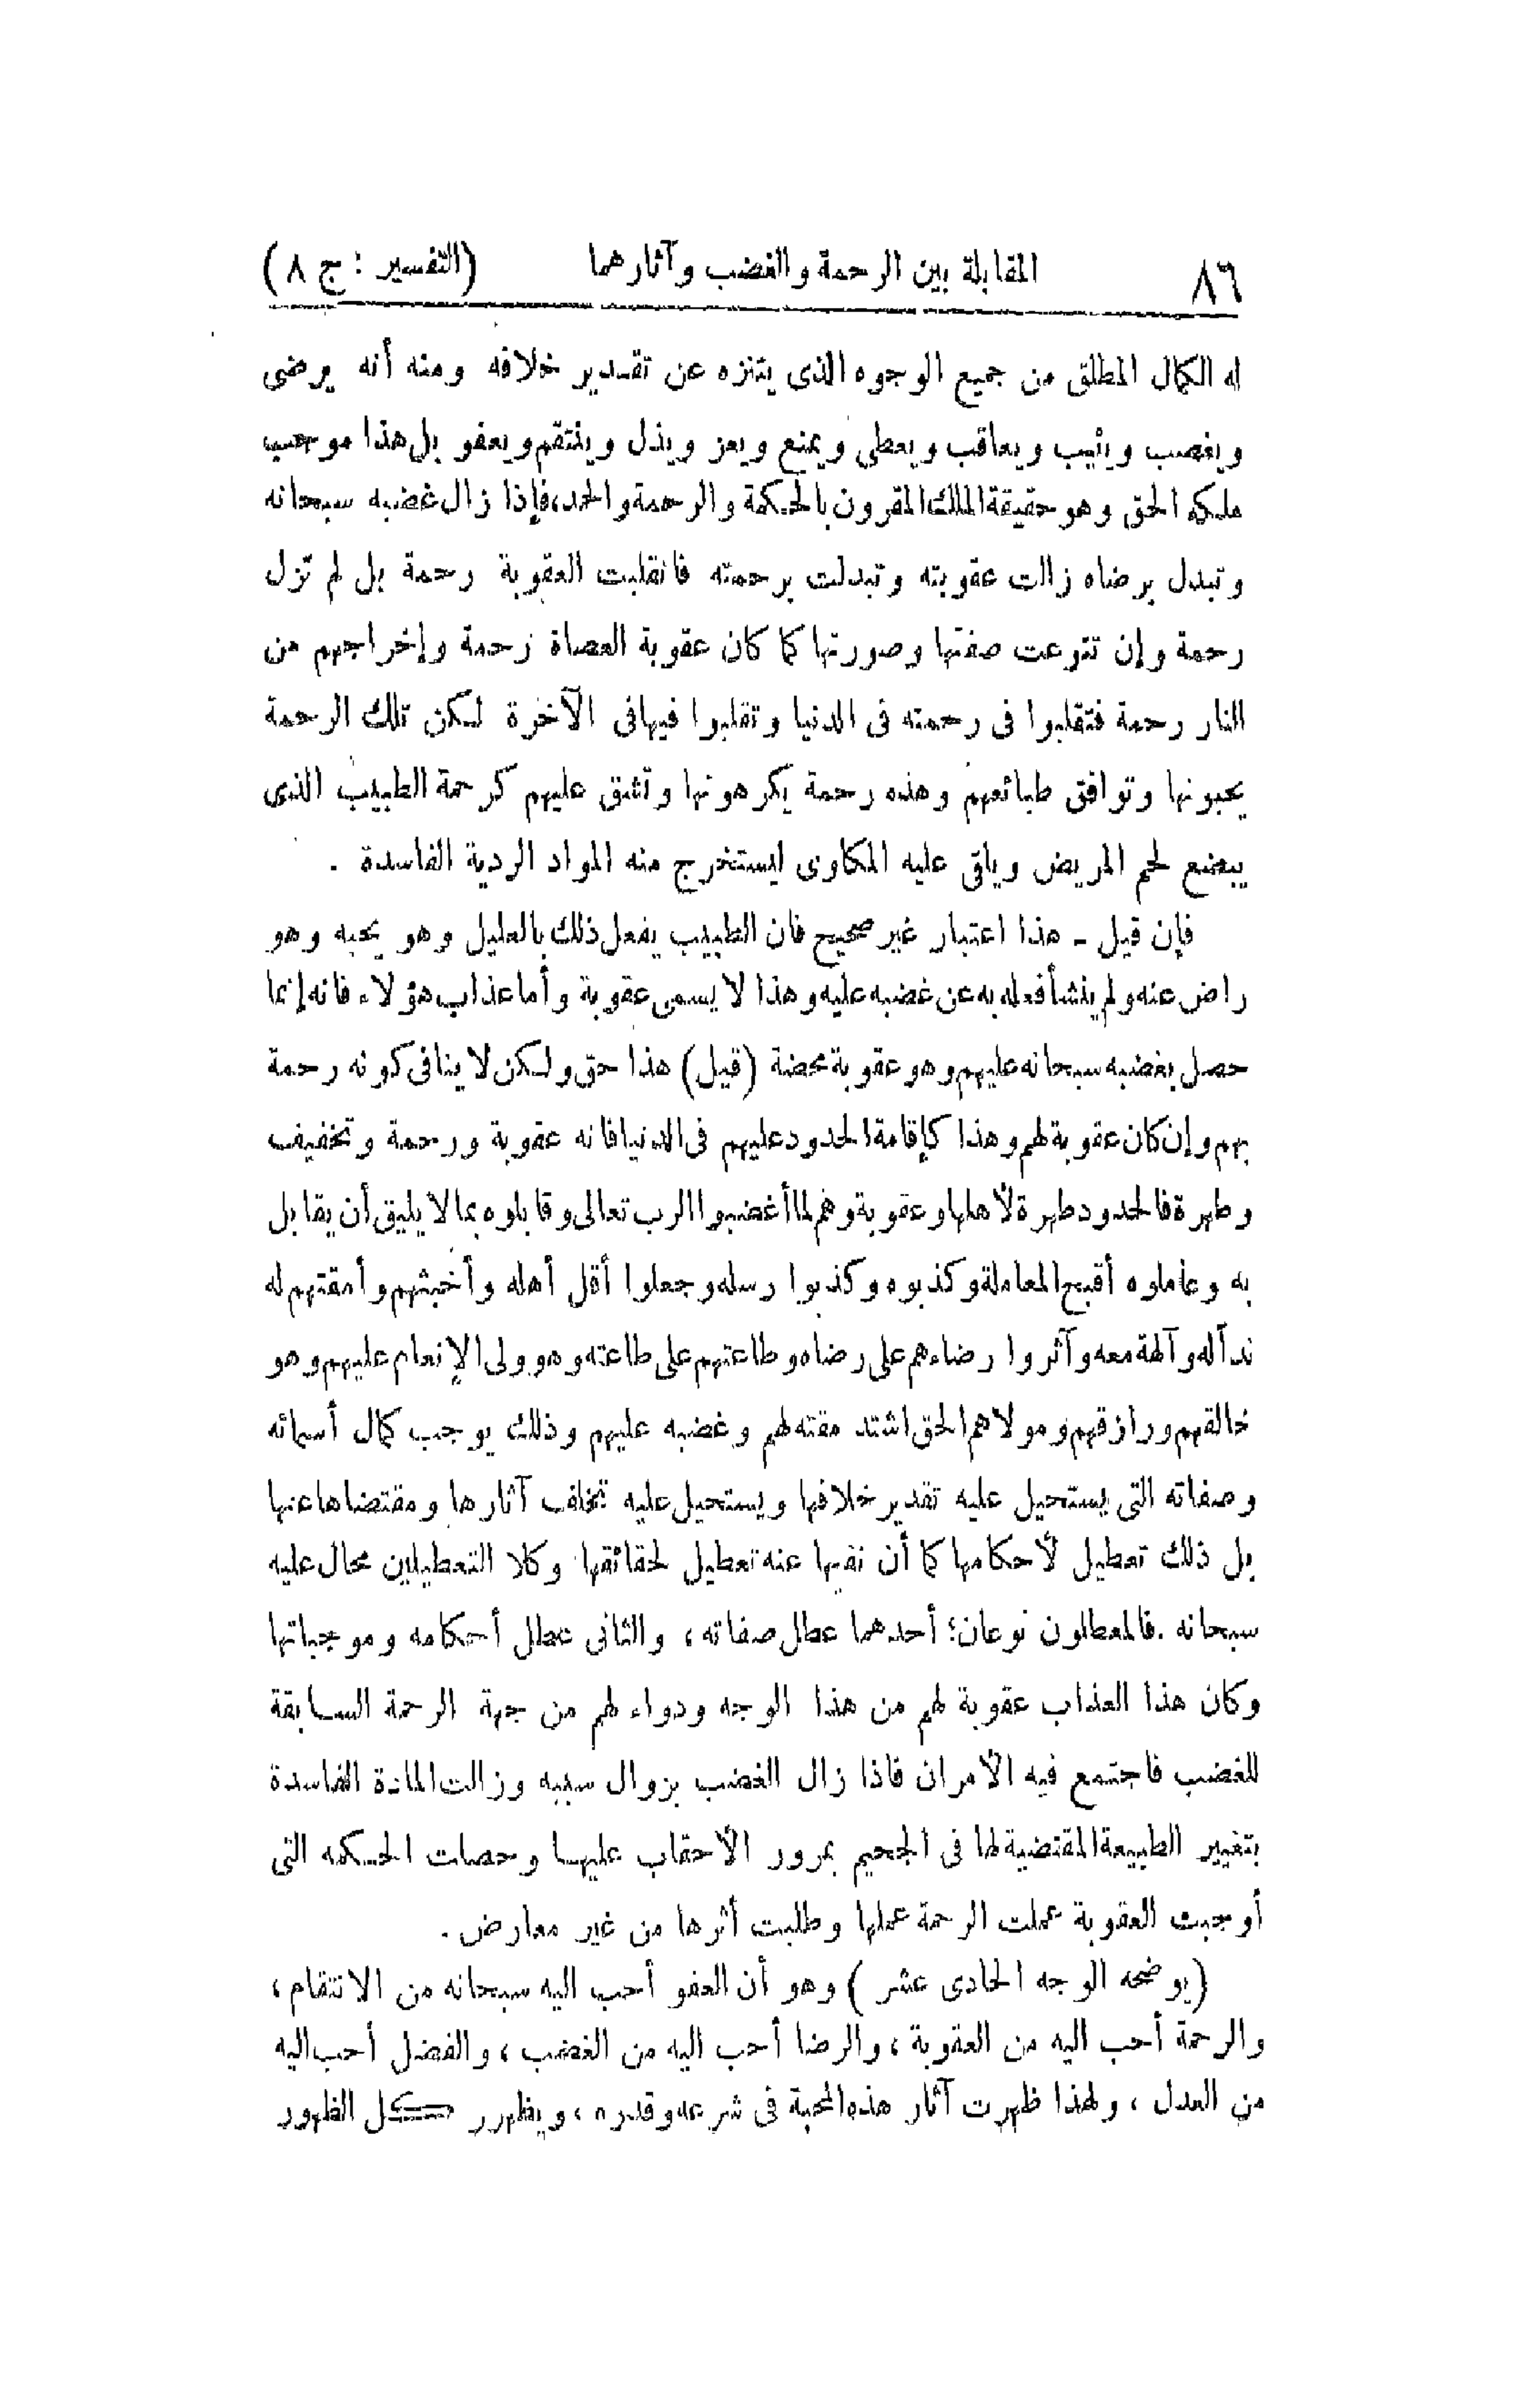 ٨٦ المقابلة بين الرحمة والغضب وآثارهما (التفسير : ج ٨)
له الكمال المطلق من جميع الوجوه الذى يتنزه عن تقدير خلافه ومنه أنه يرضى
ويغضب ويثيب ويعاقب ويعطي ويمنع ويعز ويذل وينتقم ويعفو بل هذا موجب
ملكه الحق وهو حقيقة الملك المقرون بالحكمة والرحمة والحمد، فإذا زال غضبه سبحانه
وتبدل برضاه زالت عقوبته وتبدلت برحمته فانقلبت العقوبة رحمة بل لم تزل
رحمة وإن تنوعت صفتها وصورتها كما كان عقوبة العصاة رحمة وإخراجهم من
النار رحمة فتقلبوا فى رحمته فى الدنيا وتقلبوا فيها فى الآخرة لكن تلك الرحمة
يحبونها وتوافق طبائعهم وهذه رحمة يكرهونها وتشق عليهم كرحمة الطبيب الذى
يبضع لحم المريض ويلقى عليه المكاوى ليستخرج منه المواد الردية الفاسدة .
فإن قيل ـ هذا اعتبار غير صحيح فان الطبيب يفعل ذلك بالعليل وهو يحبه وهو
راض عنه ولم ينشأ فعله به عن غضبه عليه وهذا لا يسمى عقوبة وأما عذاب هؤلاء فانه إنما
حصل بغضبه سبحانه عليهم وهو عقوبة محضة (قيل) هذا حق ولكن لا ينافى كونه رحمة
بهم وإن كان عقوبة لهم وهذا كإقامة الحدود عليهم فى الدنيا فانه عقوبة ورحمة وتخفيف
وطهرة فالحدود طهرة لأهلها وعقوبة وهم لما أغضبوا الرب تعالى وقابلوه بما لا يليق أن يقابل
به وعاملوه أقبح المعاملة وكذبوه وكذبوا رسله وجعلوا أقل أهله وأخبثهم وأمقتهم له
نداً له وآلهة معه وآثروا رضاءهم على رضاه وطاعتهم على طاعته وهو ولى الإنعام عليهم وهو
خالقهم ورازقهم ومولاهم الحق اشتد مقته لهم وغضبه عليهم وذلك يوجب كمال أسمائه
وصفاته التى يستحيل عليه تقدير خلافها ويستحيل عليه تخلف آثارها ومقتضاها عنها
بل ذلك تعطيل لأحكامها كما أن نفيها عنه تعطيل لحقائقها وكلا التعطيلين محال عليه
سبحانه .فالمعطلون نوعان؛ أحدهما عطل صفاته ، والثانى عطل أحكامه وموجباتها
وكان هذا العذاب عقوبة لهم من هذا الوجه ودواء لهم من جهة الرحمة السابقة
للغضب فاجتمع فيه الأمران فاذا زال الغضب بزوال سببه وزالت المادة الفاسدة
بتغيير الطبيعة المقتضية لها فى الجحيم بمرور الأحقاب عليها وحصلت الحكمه التى
أوجبت العقوبة عملت الرحمة عملها وطلبت أثرها من غير معارض .
(يوضحه الوجه الحادى عشر ) وهو أن العفو أحب اليه سبحانه من الانتقام ،
والرحمة أحب اليه من العقوبة ، والرضا أحب اليه من الغضب ، والفضل أحب اليه
من العدل ، ولهذا ظهرت آثار هذه المحبة فى شرعه وقدره ، ويظهر كل الظهور